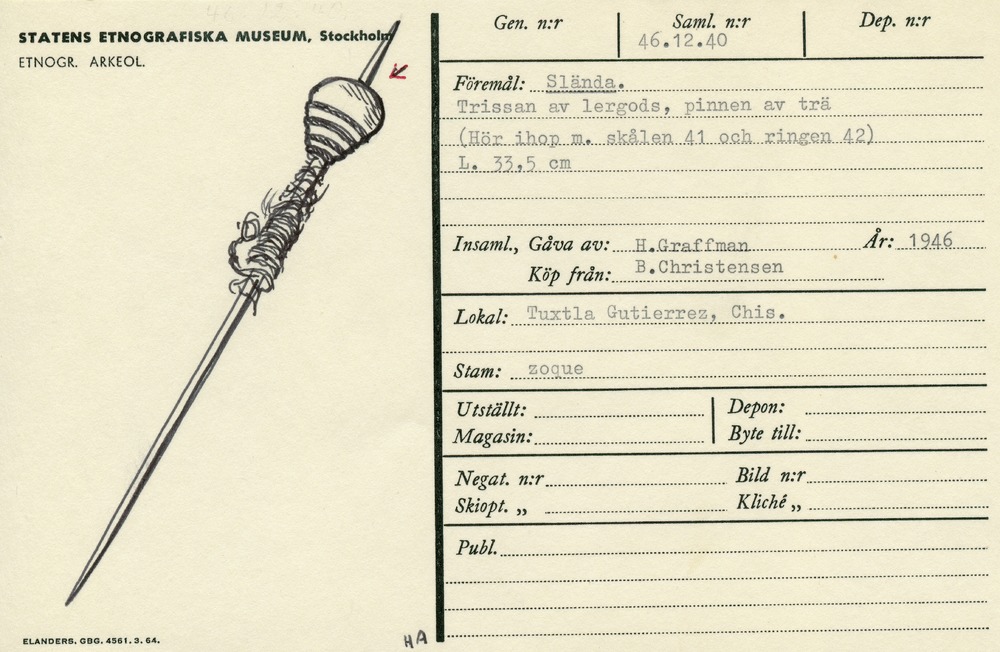 STATENS ETNOGRAFISKA MUSEUM, Stockholm
ETNOGR. ARKEOL.
Gen. n:r Saml. n:r Dep. n:r
46.12.40
Föremål: Slända.
Trissan av lergods, pinnen av trä
(Hör ihop m. skålen 41 och ringen 42)
L. 33,5 cm
Insaml., Gåva av: H.Graffman År: 1946
Köp från: B.Christensen
Lokal: Tuxtla Gutierrez, Chis.
Stam: zoque
Utställt: Depon:
Magasin: Byte till:
Negat. n:r Bild n:r
Skiopt. „ Kliché „
Publ.
ELANDERS. GBG. 4561. 3. 64.
HA